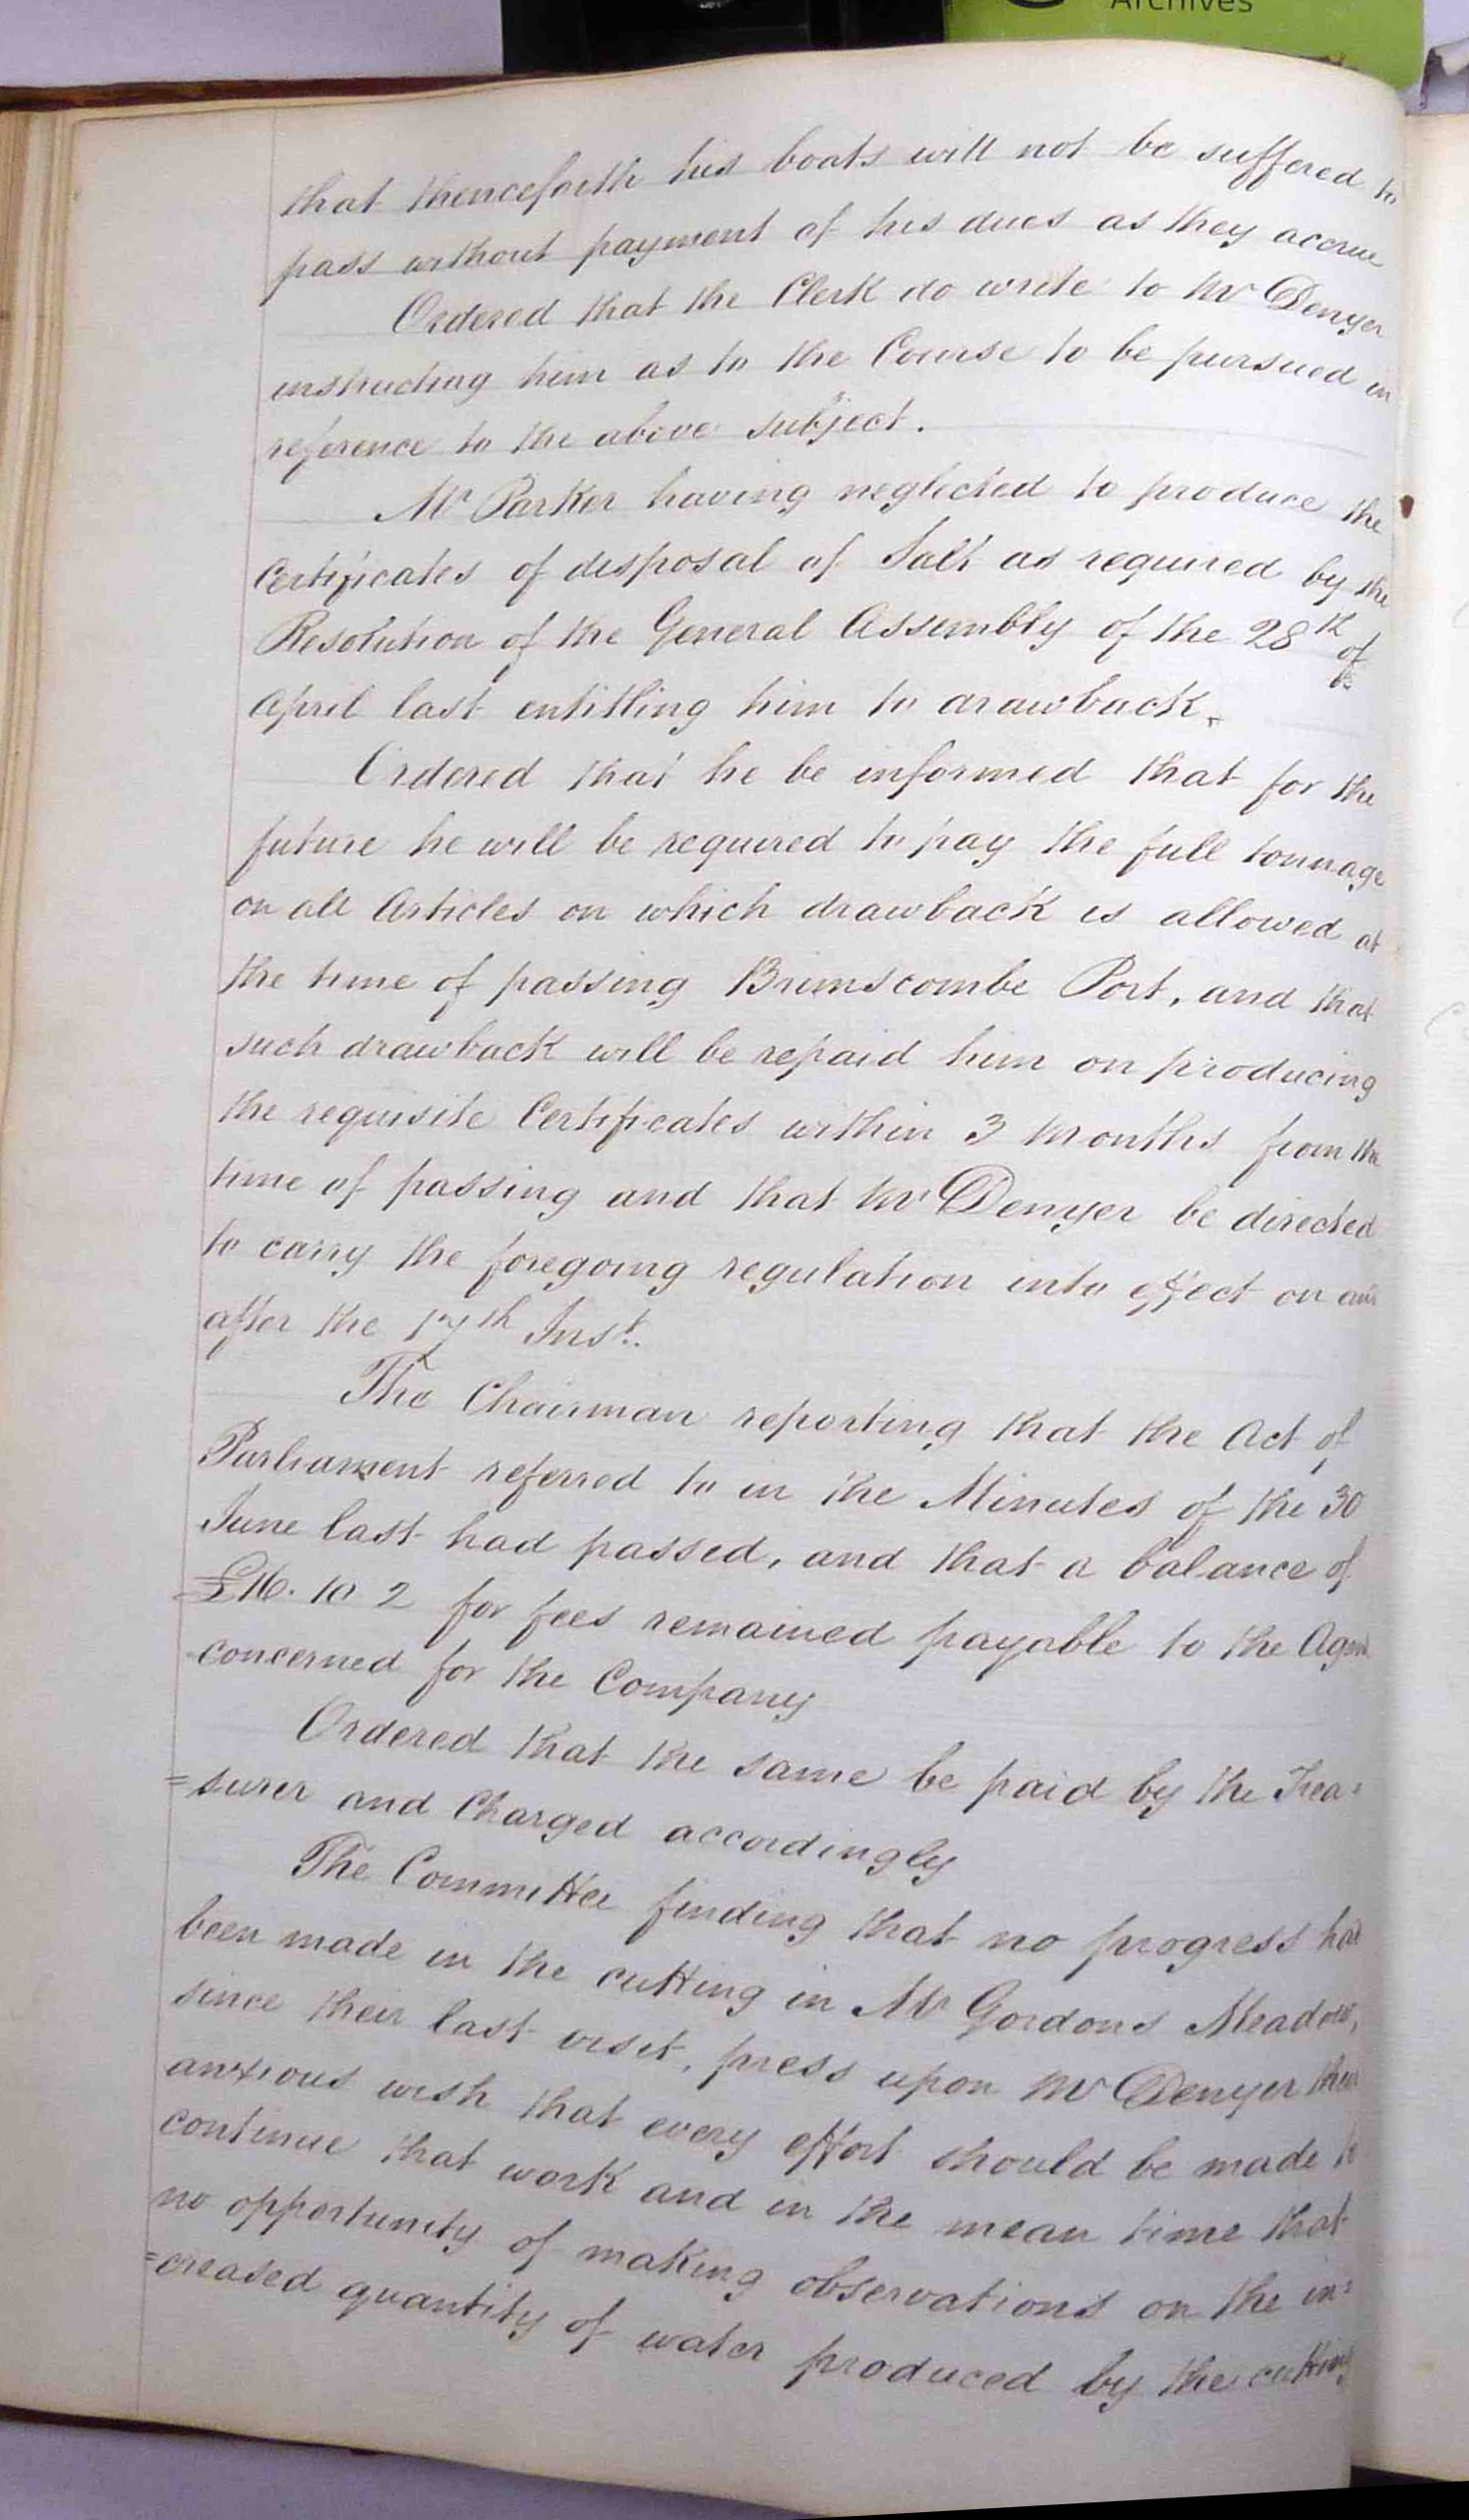 Archives
that thenceforth his boats will not be suffered to
pass without payment of his dues as they accrue
Ordered that the Clerk do write to Mr Denyer
instructing him as to the Course to be pursued in
reference to the above subject.
Mr Parker having neglected to produce the
Certificates of disposal of Salt as required by the
Resolution of the General Assembly of the 28th of
April last entitling him to drawback.
Ordered that he be informed that for the
future he will be required to pay the full tonnage
on all Articles on which drawback is allowed at
the time of passing Brimscombe Port, and that
such drawback will be repaid him on producing
the requisite Certificates within 3 Months from the
time of passing and that Mr Denyer be directed
to carry the foregoing regulation into effect on and
after the 17th Inst.
The Chairman reporting that the Act of
Parliament referred to in the Minutes of the 30
June last had passed, and that a balance of
£16. 10 2 for fees remained payable to the Agent
concerned for the Company
Ordered that the same be paid by the Trea=
=surer and Charged accordingly
The Committee finding that no progress had
been made in the cutting in Mr Gordons Meadow,
since their last visit, press upon Mr Denyer their
anxious wish that every effort should be made to
continue that work and in the mean time that
no opportunity of making observations on the in=
=creased quantity of water produced by the cutting